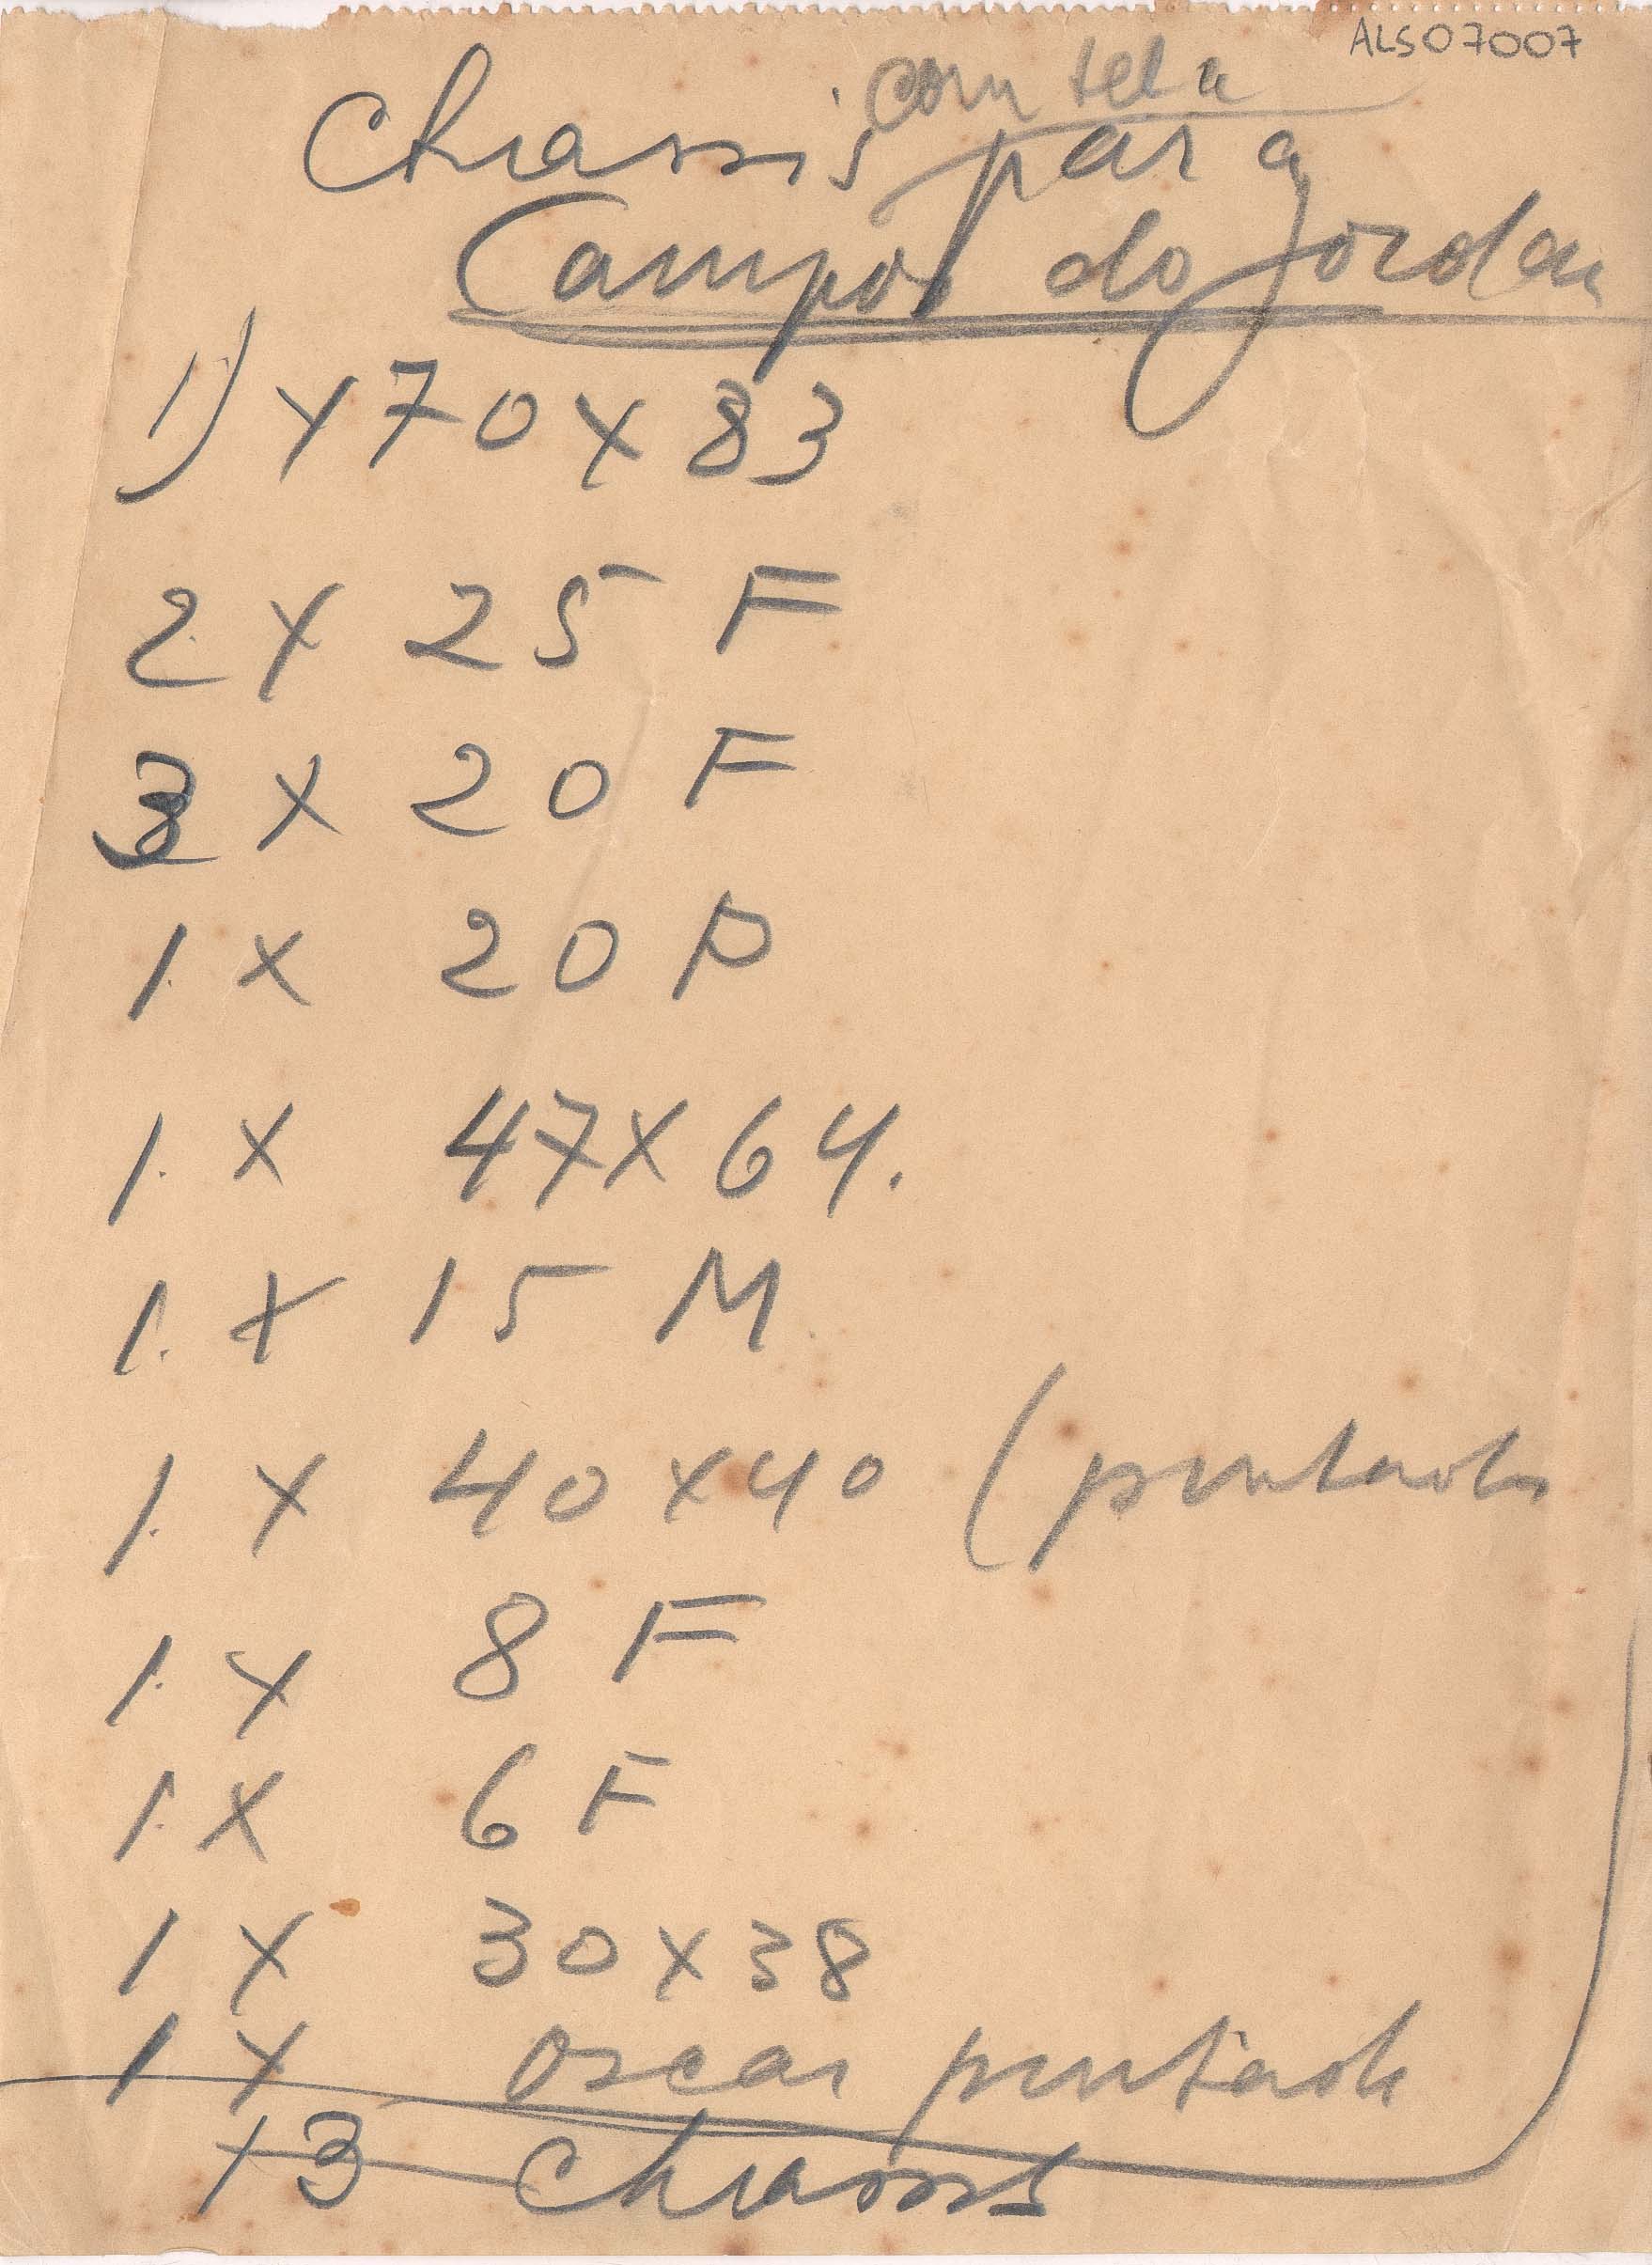 ALS07007
com tela
Chassis para
Campos do Jordau
1) x 70 x 83
2 x 25 F
3 x 20 F
1. x 20 P
1. x 47 x 64.
1. x 15 M
1. x 40 x 40 (pintado
1. x 8 F
1. x 6 F
1 x 30 x 38
1 x Oscar pintado
13 Chassis